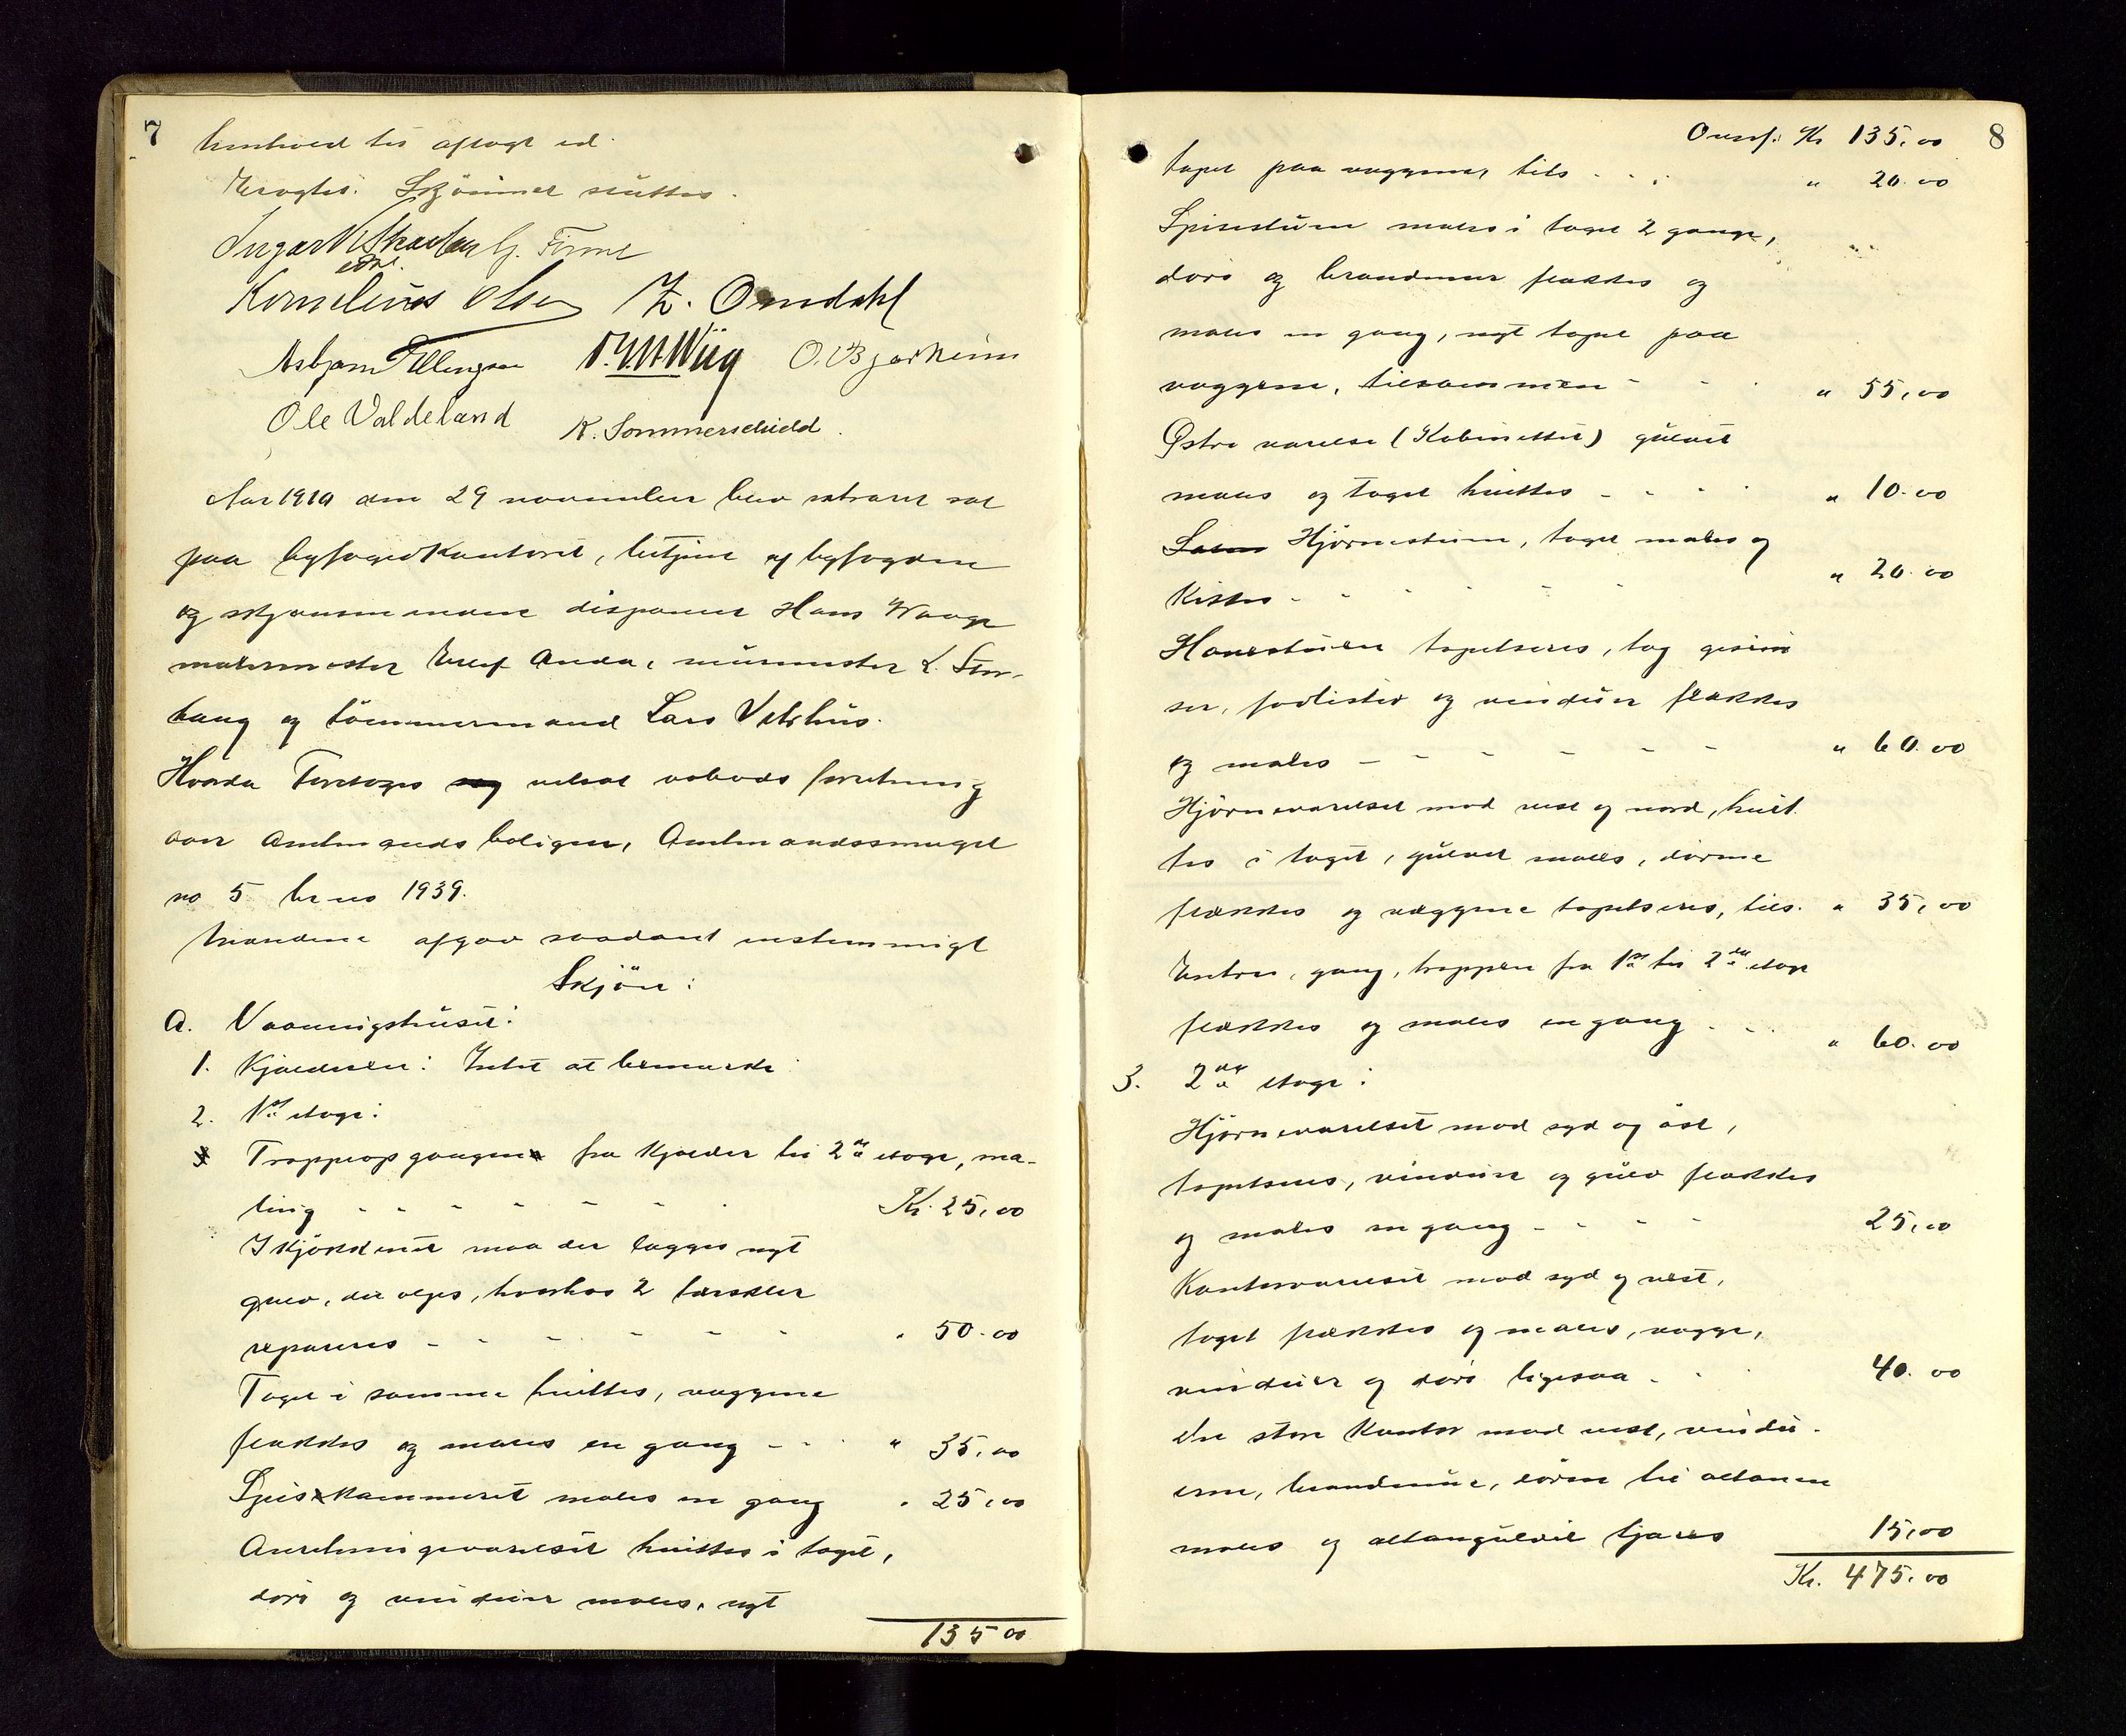 7
henhold til aflagt ed.
Oplæst. Skjönnet sluttes.
Kornelius Olsen Z. Omdahl
Asbjørn Ellingsen O. Bjorheim
Ole Valdeland K. Sommerschield.
Aar 1910 den 29 november blev saadan ret
paa byfogedkontoret, betjent af byfogden
og skjønsmændene disponent Hans Waage
malermester Anda, murmester L. Sten-
haug og tömmermand Lars Vatshus.
Hvorda Foretoges aabods forretning
over Amtmandsboligen, Amtmandssmuget
no 5 br no 1939.
Mændene afgav saadant enstemmigt
Skjön:
A. Vaaningshuset:
1. Kjælderen: Intet at bemærke
2. 1ste etage:
Trappeopgangen fra Kjælder til 2den etage, ma-
ling - - - - - - Kr. 25,00
I kjökkenet maa der lægges nyt
gulv, der oljes, hvorhos 2 tærskler
repareres - - - - - " 50.00
Taget i samme hvittes, væggene
flækkes og males en gang - - " 35,00
Spiskammeret males en gang " 25,00
Anretningsværelset hvittes i taget,
dörs og vinduer males, nyt
135 00
8
Overf: Kr 135,00
tapet paa væggene, tils - - " 20.00
Spisestuen males i taget 2 gange,
dörs og brandmur flækkes og
males en gang, nyt tapet paa
væggene, tilsammen - - " 55,00
Østre værelse (Kabinettet) gulvet
males og taget hvittes - - - " 10.00
Hjörnestuen, taget males og
kittes - - - - " 20.00
Havestuen tapetseres, tag gesim
ser, fodlister og vinduer flækkes
og males - - - - - - " 60.00
Hjörneværelset mod vest og nord, hvit
tes i taget, gulvet males, dörene
flækkes og væggene tapetseres, tils. " 35,00
Entre, gang, trappen fra 1ste til 2den etage
flækkes og males en gang - - " 60.00
3. 2den etage:
Hjörneværelset mod syd og öst,
tapetseres, vinduer og gulv flækkes
og males en gang - - - 25,00
Kontorværelset mod syd og vest,
taget flækkes og males, vægge,
vinduer og dörs ligesaa - - 40.00
Det store Kontor mod vest, vindu-
erne, brandmur, dören til altanen
males og altangulvet tjæres 15,00
Kr. 475.00